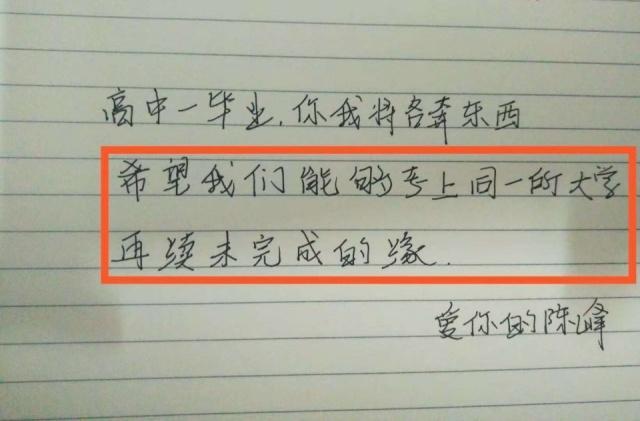 高中一毕业，你我将各奔东西
希望我们能够考上同一的大学
再续未完成的缘．
爱你的陈峰